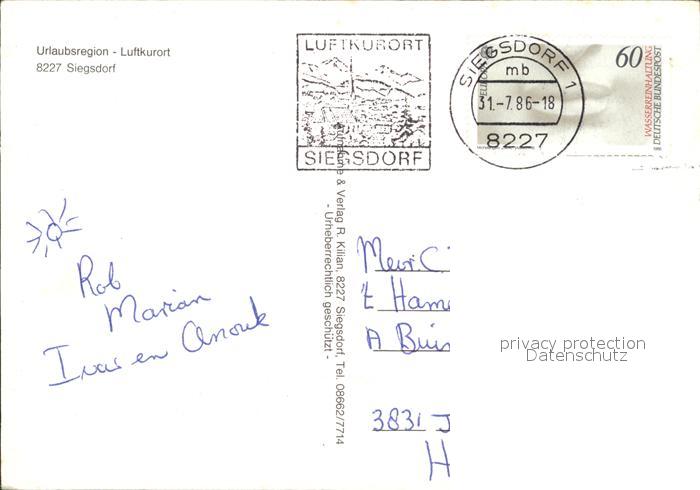 Urlaubsregion - Luftkurort
8227 Siegsdorf
LUFTKURORT
SIEGSDORF
SIEGSDORF 1
mb
31.-7.86-18
8227
EUROPA
60
WASSERREINHALTUNG
DEUTSCHE BUNDESPOST
& Verlag R. Kilian, 8227 Siegsdorf, Tel. 08662/7714
- Urheberrechtlich geschützt -
Rob
Marian
en Anouk
Mevr. C
't Ham
A
3831 J
H
privacy protection
Datenschutz